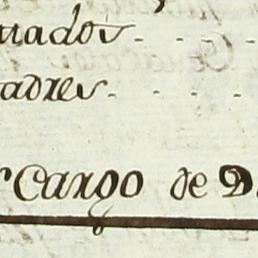 uados - - - -
adres - - - -
r Cargo de D.